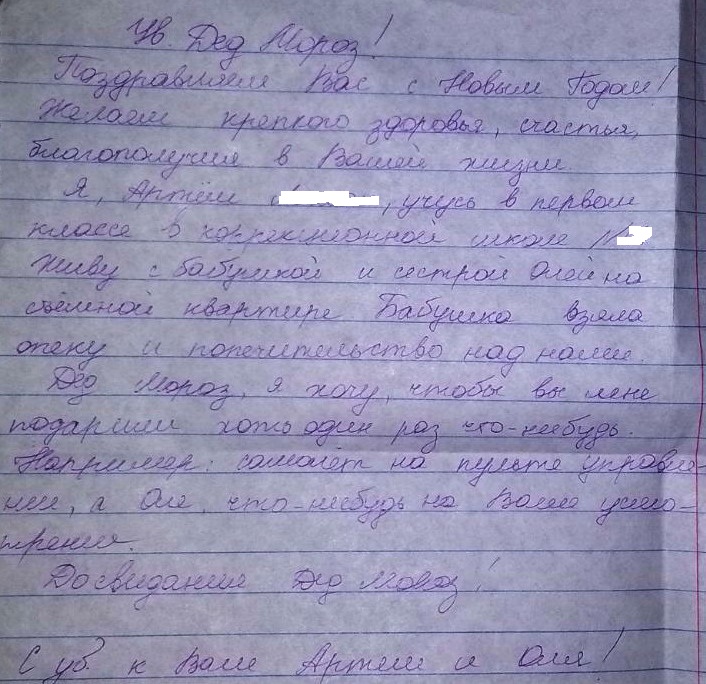 Ув. Дед Мороз!
Поздравляем Вас с Новым Годом!
Желаем крепкого здоровья, счастья,
благополучия в Вашей жизни.
Я, Артём , учусь в первом
классе в коррекционной школе №
Живу с бабушкой и сестрой Олей на
съёмной квартире Бабушка взяла
опеку и попечительство над нами.
Дед Мороз, я хочу, чтобы вы мне
подарили хоть один раз что-нибудь.
Например: самолёт на пульте управле-
нии, а Оле, что-нибудь на Ваше усмо-
трение.
Досвидания Дед Мороз!
С ув. к Вам Артем и Оля!